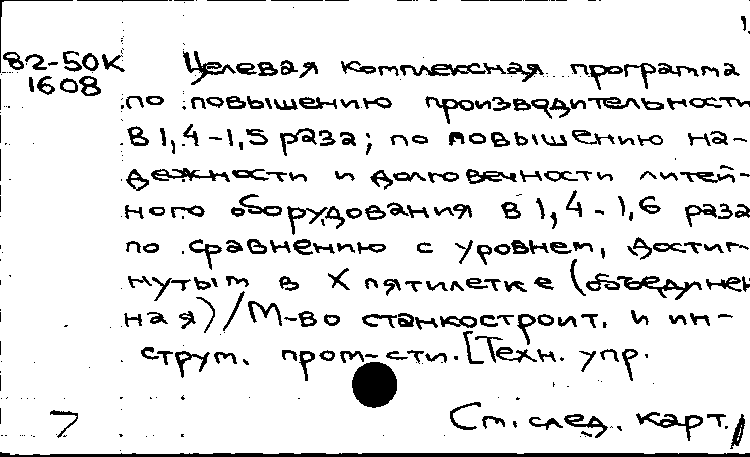 82-50К Целевая комплексная программа
1608
по повышению производительности
в 1,4-1,5 раза; по повышению на-
дежности и долговечности литей-
ного оборудования в 1,4-1,6 раза
по сравнению с уровнем, достиг-
нутым в X пятилетке (объединен
ная)/М-во станкостроит. и ин-
струм. пром-сти. [Техн. упр.
7 См. след. карт.